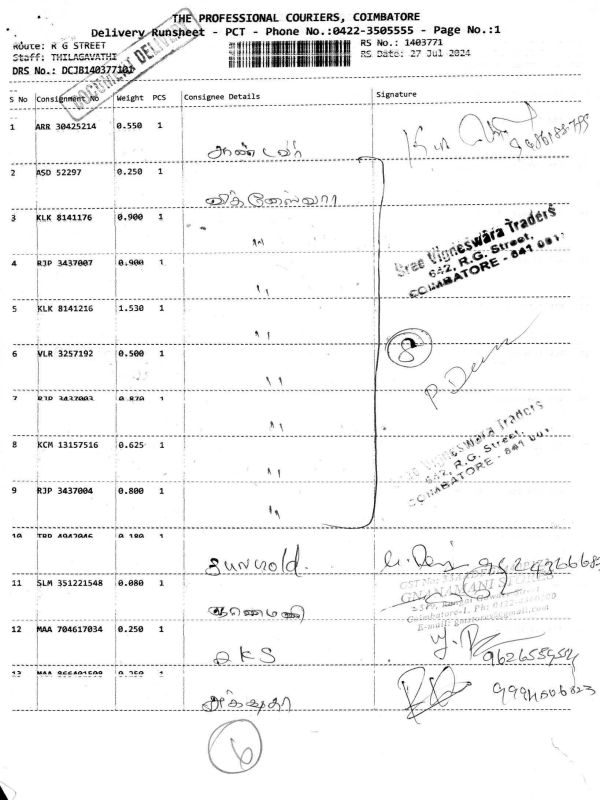 THE PROFESSIONAL COURIERS, COIMBATORE
Delivery Runsheet - PCT - Phone No.:0422-3505555 - Page No.:1
Route: R G STREET
RS No.: 1403771
Staff: THILAGAVATHI
RS Date: 27 Jul 2024
DRS No.: DCJB140377101
DOCUMENT DELIVERY
S No Consignment No Weight PCS Consignee Details Signature
1 ARR 30425214 0.550 1
2 ASD 52297 0.250 1
விக்னேஸ்வரா
3 KLK 8141176 0.900 1
"
Sree Vigneswara Traders
642, R.G. Street,
COIMBATORE - 641 001
4 RJP 3437007 0.900 1
"
5 KLK 8141216 1.530 1
"
8
6 VLR 3257192 0.500 1
"
7 RJP 3437003 0.870 1
"
Vigneswara Traders
642, R.G. Street,
COIMBATORE - 641 001
8 KCM 13157516 0.625 1
"
9 RJP 3437004 0.800 1
"
10 0.180 1
Sun Gold.
11 SLM 351221548 0.080 1
குணமணி
GNANAMANI
Coimbatore-1.
12 MAA 704617034 0.250 1
2KS
9626559514
13 MAA 0.250 1
6